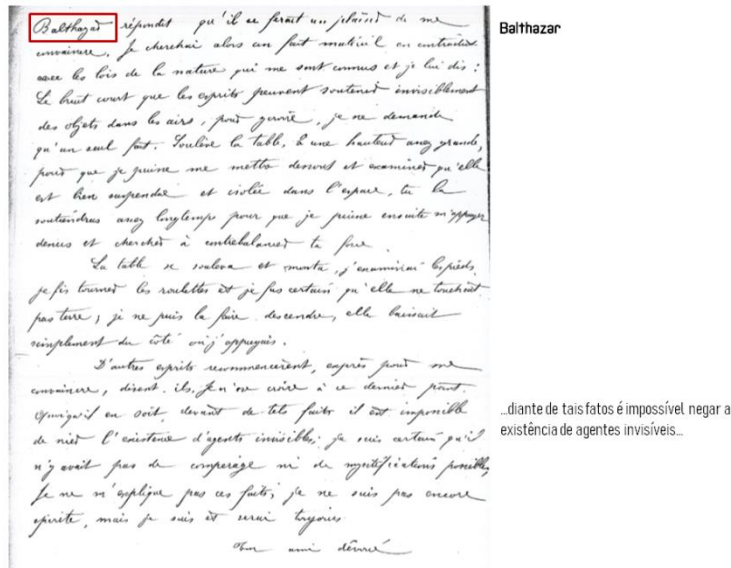 Balthazar répondit qu'il se ferait un plaisir de me
convaincre. Je cherchai alors un fait matériel en contradict
avec les lois de la nature qui me sont connues et je lui dis :
Le bruit court que les esprits peuvent soutenir invisiblement
des objets dans les airs, pour croire, je ne demande
qu'un seul fait. Soulève la table, à une hauteur assez grande,
pour que je puisse me mettre dessous et examiner qu'elle
est bien suspendue et isolée dans l'espace, tu la
soutiendras assez longtemps pour que je puisse ensuite m'appuyer
dessus et chercher à contrebalancer ta force.
La table se souleva et monta, j'examinai les pieds,
je fis tourner les roulettes et je fus certain qu'elle ne touchait
pas terre ; je ne puis la faire descendre, elle baissait
simplement du côté où j'appuyais.
D'autres esprits recommencèrent, exprès pour me
convaincre, disent-ils. Je n'ose croire à ce dernier point.
Quoiqu'il en soit, devant de tels faits il est impossible
de nier l'existence d'agents invisibles; je suis certain qu'il
n'y avait pas de compérage ni de mystifications possibles,
Je ne m'explique pas ces faits, je ne suis pas encore
spirite, mais je suis et serai toujours
ami dévoué
Balthazar
...diante de tais fatos é impossível negar a
existência de agentes invisíveis...